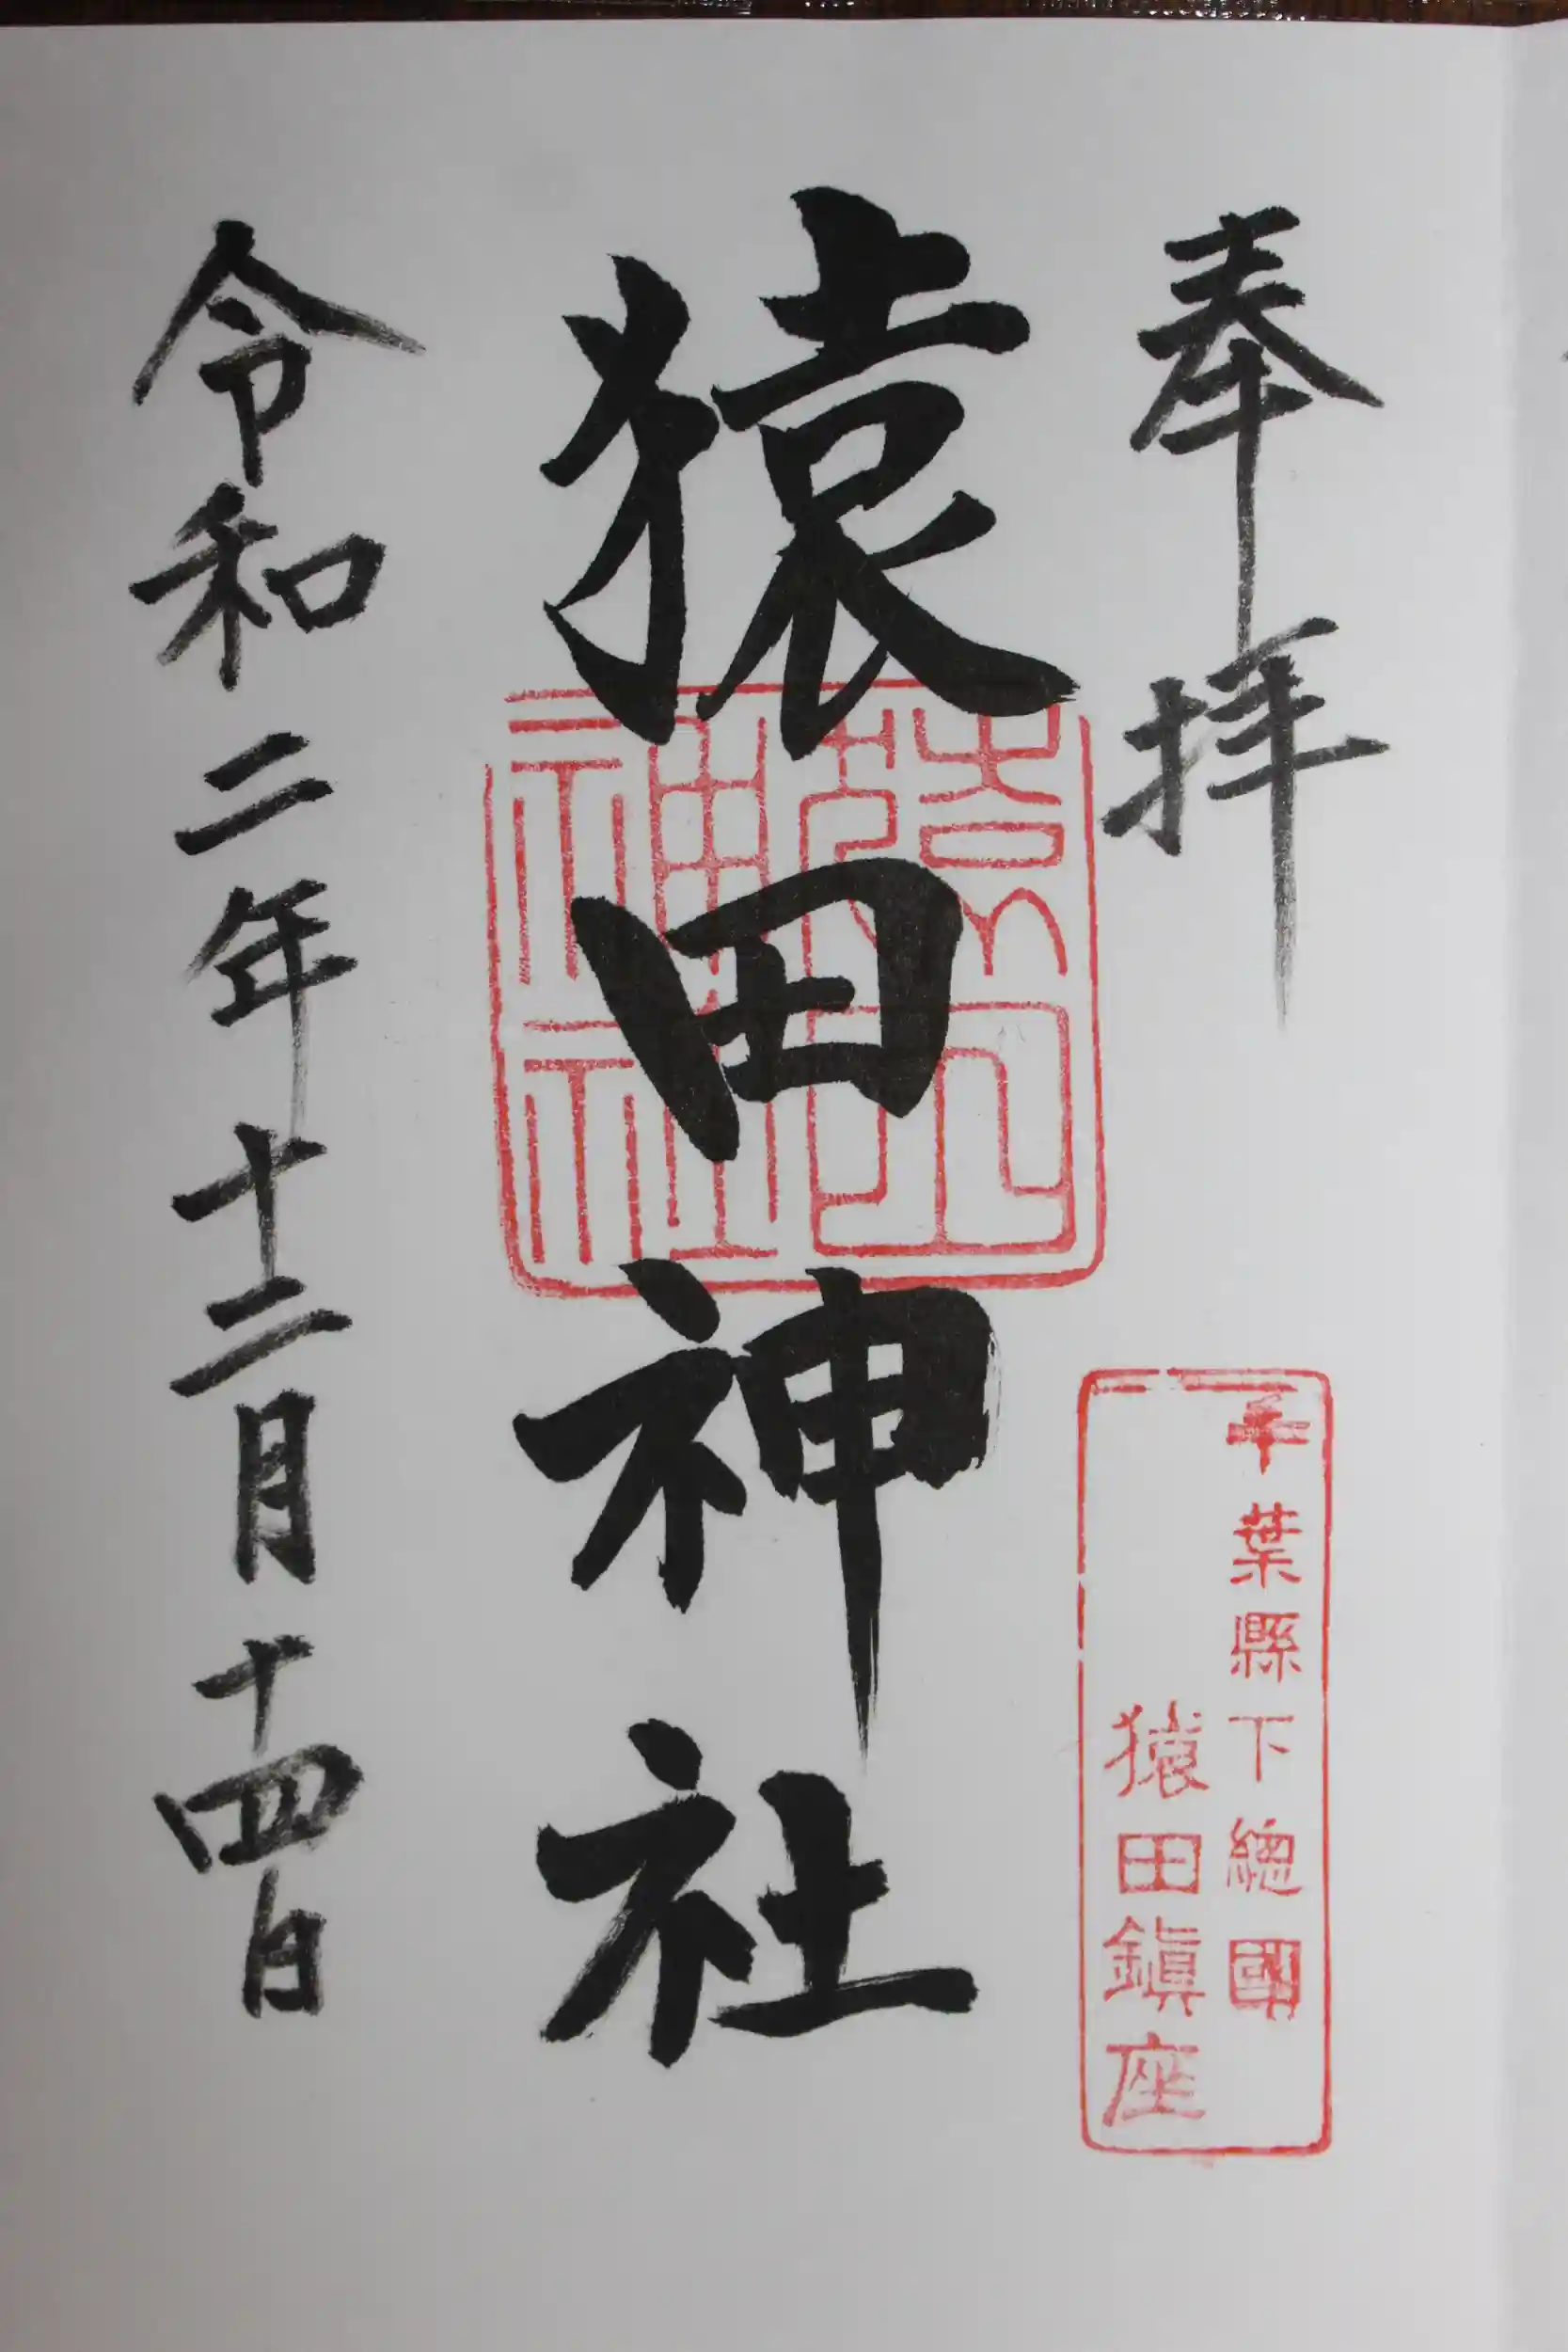 奉拝
千葉縣下總國
猿田鎮座
猿田神社
猿田
神社
令和二年十二月十四日